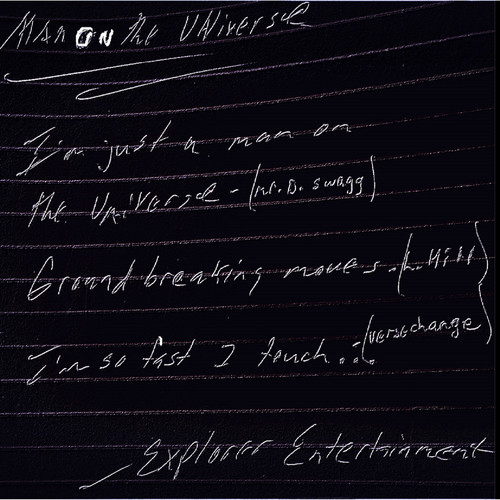 Man ON the UNiverse
I'm just a man on
the Universe - (Mr. D. Swagg)
Ground breaking moves. (L. Hill)
I'm so fast I touch... (verse change)
Explorer Entertainment